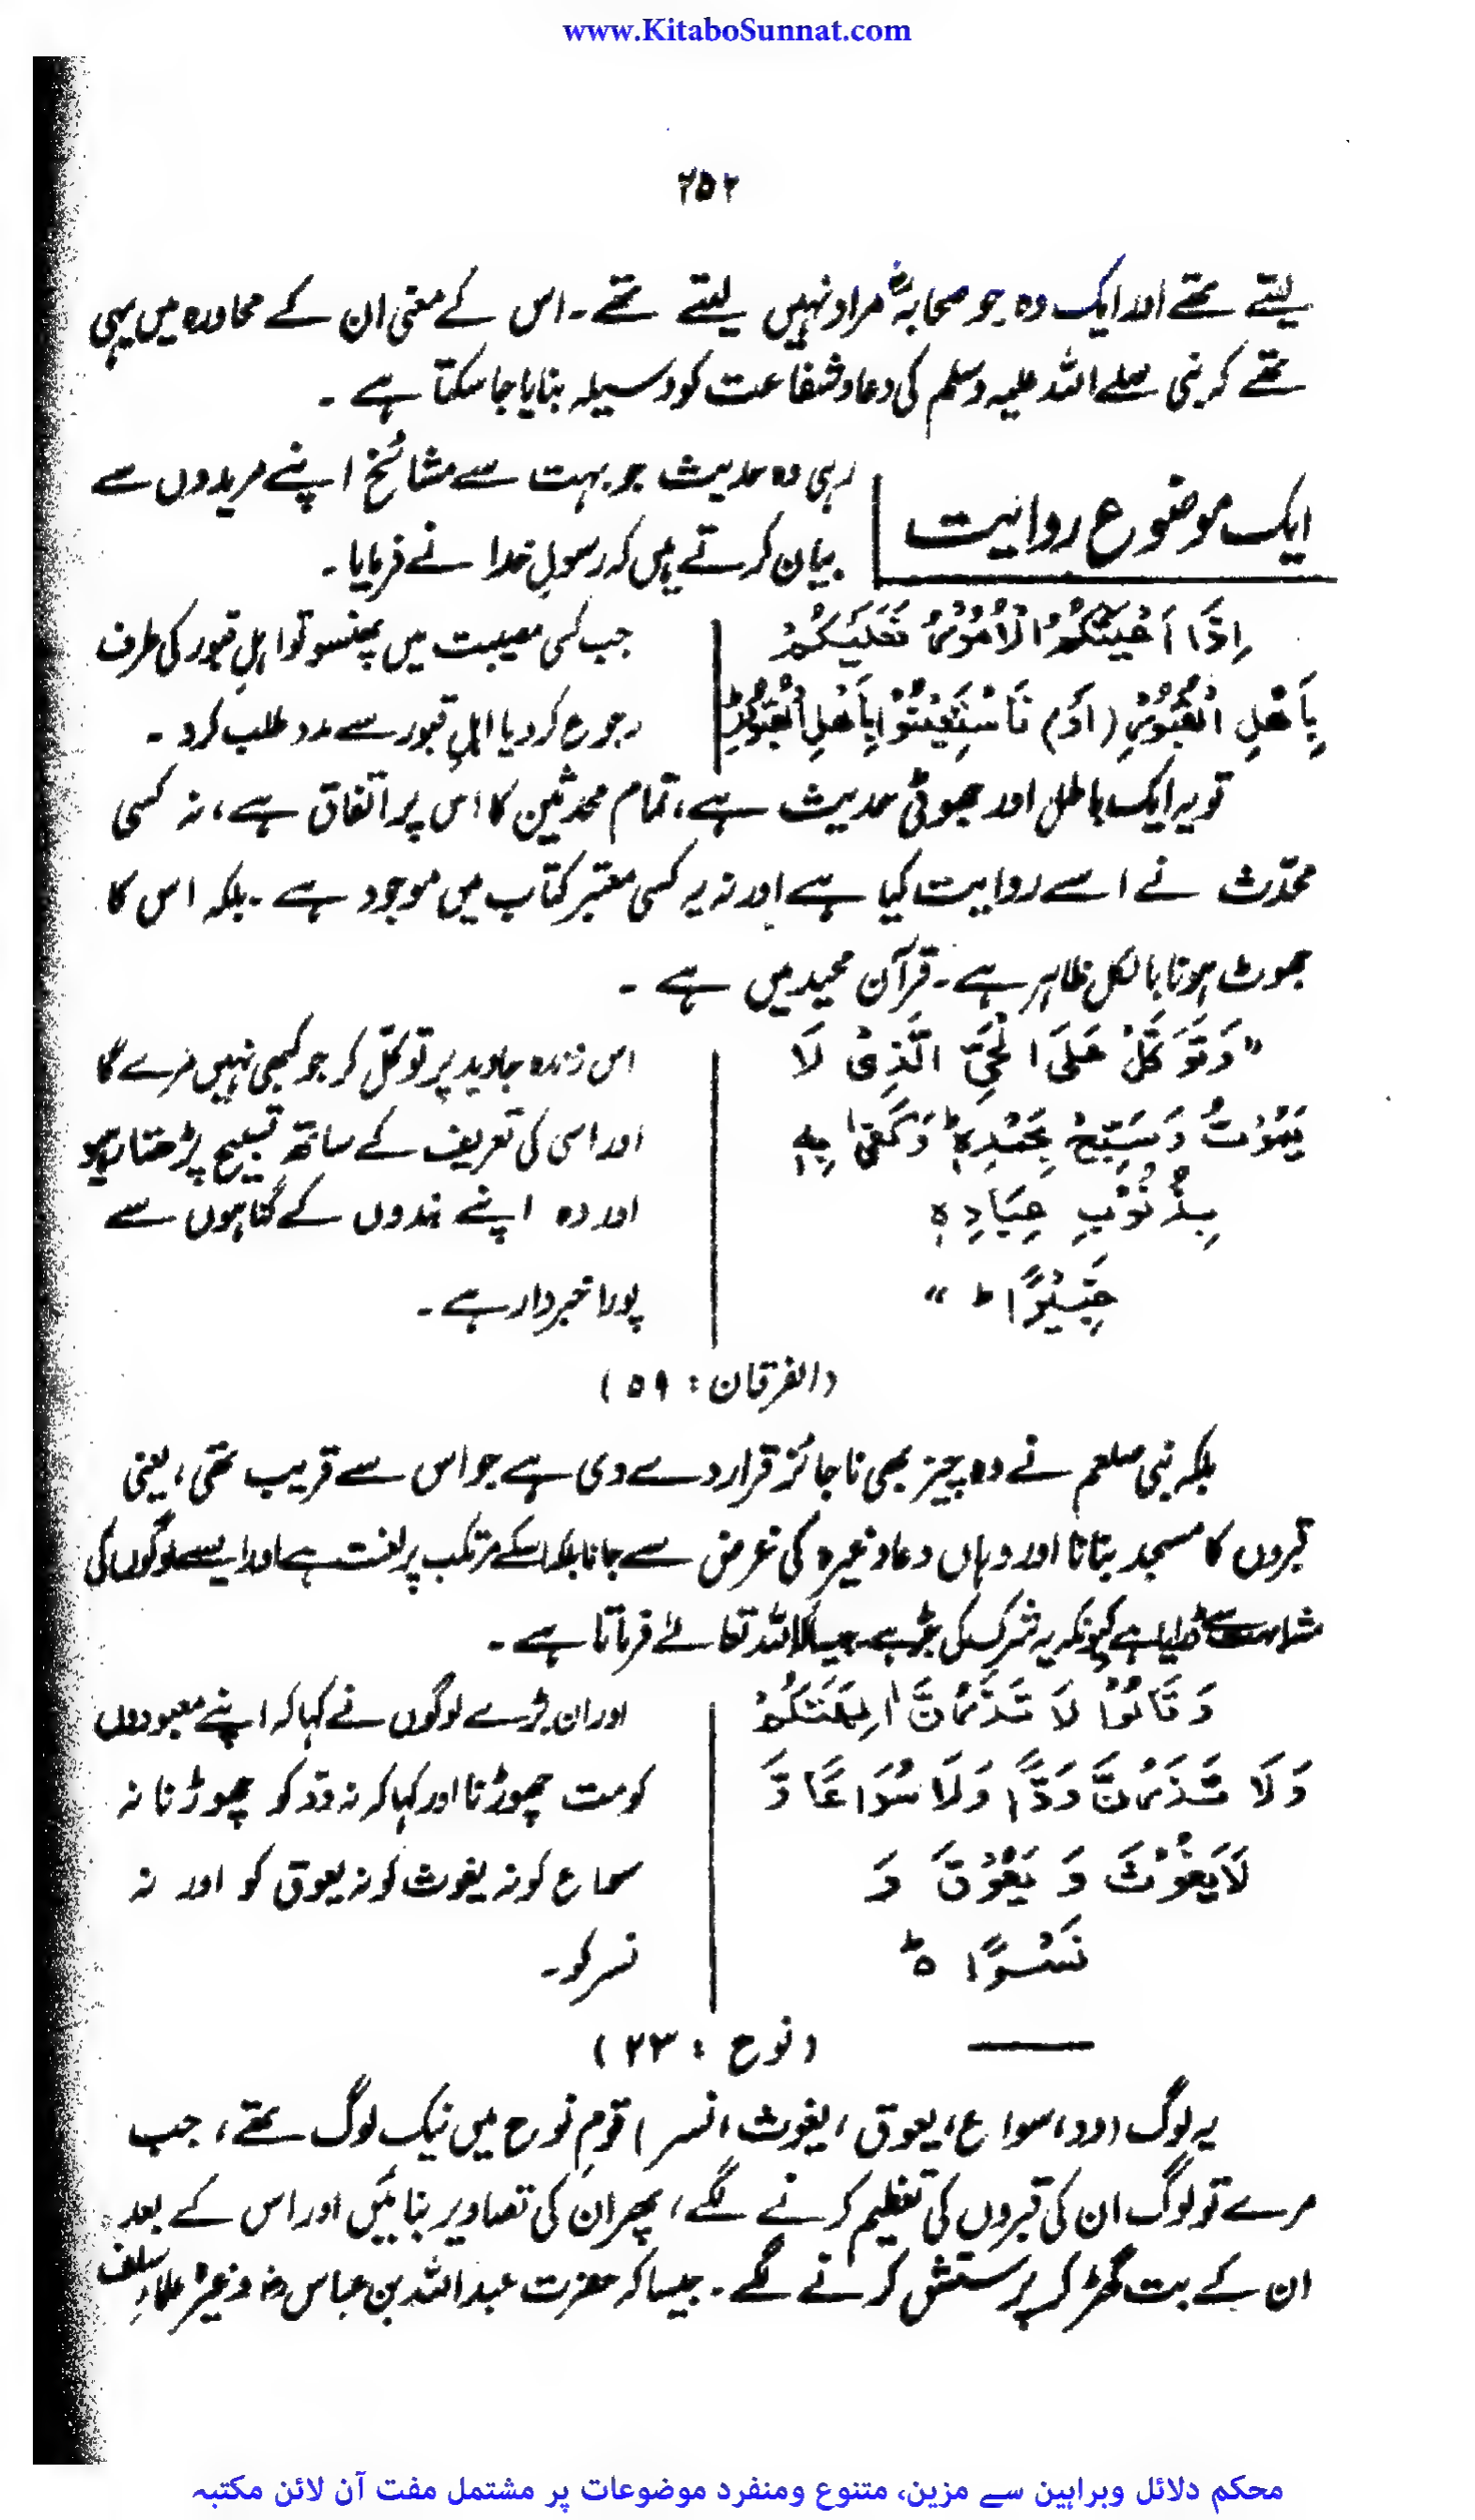 www.KitaboSunnat.com
۲۵۲
لیتے تھے اور ایک وہ جو صحابہؓ مراد نہیں لیتے تھے۔ اس کے معنی ان کے محاورہ میں یہی
تھے کہ نبی صلے اللہ علیہ وسلم کی دعا و شفاعت کو وسیلہ بنایا جا سکتا ہے ۔
ایک موضوع روایت
رہی وہ حدیث جو بہت سے مشائخ اپنے مریدوں سے
بیان کرتے ہیں کہ رسولِ خدا نے فرمایا ۔
اِذَا اَعْیَتْکُمُ الْاُمُوْرُ فَعَلَیْکُمْ
بِاَھْلِ الْقُبُوْرِ (اَوْ) فَاسْتَعِیْنُوْا بِاَھْلِ الْقُبُوْرِ
جب کسی مصیبت میں پھنسو تو اہلِ قبور کی طرف
رجوع کرو یا اہلِ قبور سے مدد طلب کرو ۔
تو یہ ایک باطل اور جھوٹی حدیث ہے، تمام محدثین کا اس پر اتفاق ہے، نہ کسی
محدّث نے اسے روایت کیا ہے اور نہ یہ کسی معتبر کتاب میں موجود ہے ۔ بلکہ اس کا
جھوٹ ہونا بالکل ظاہر ہے ۔ قرآن مجید میں ہے ۔
"وَتَوَکَّلْ عَلَی الْحَیِّ الَّذِیْ لَا
یَمُوْتُ وَسَبِّحْ بِحَمْدِہٖ ؕ وَکَفٰی بِہٖ
بِذُنُوْبِ عِبَادِہٖ
خَبِیْرًا ؕ "
اس زندہ جاوید پر توکّل کر جو کبھی نہیں مرے گا
اور اسی کی تعریف کے ساتھ تسبیح پڑھتا رہو
اور وہ اپنے بندوں کے گناہوں سے
پورا خبردار ہے ۔
(الفرقان : ۵۹)
بلکہ نبی صلعم نے وہ چیز بھی ناجائز قرار دے دی ہے جو اس سے قریب تھی، یعنی
قبروں کا مسجد بنانا اور وہاں دعا وغیرہ کی غرض سے جانا بلکہ اسکے مرتکب پر لعنت ہے اور ایسے لوگوں کی
سے ہے کیونکہ یہ شرک کی جڑ ہے جیسا کہ اللہ تعالےٰ فرماتا ہے ۔
وَ قَالُوْا لَا تَذَرُنَّ اٰلِھَتَکُمْ
وَلَا تَذَرُنَّ وَدًّا وَلَا سُوَاعًا وَّ
لَا یَغُوْثَ وَ یَعُوْقَ وَ
نَسْرًا ہ ؕ
اور ان بڑے لوگوں نے کہا کہ اپنے معبودوں
کو مت چھوڑنا اور کہا کہ نہ ودّ کو چھوڑنا نہ
سماع کو نہ یغوث کو نہ یعوق کو اور نہ
نسر کو ۔
(نوح : ۲۳)
یہ لوگ (ود، سواع، یعوق، یغوث، نسر) قومِ نوح میں نیک لوگ تھے، جب
مرے تو لوگ ان کی قبروں کی تعظیم کرنے لگے، پھر ان کی تصاویر بنائیں اور اس کے بعد
ان کے بت گھڑ کر پرستش کرنے لگے ۔ جیسا کہ حضرت عبد اللہ بن عباس رض وغیرہ علماءِ سلف
محکم دلائل وبراہین سے مزین، متنوع ومنفرد موضوعات پر مشتمل مفت آن لائن مکتبہ